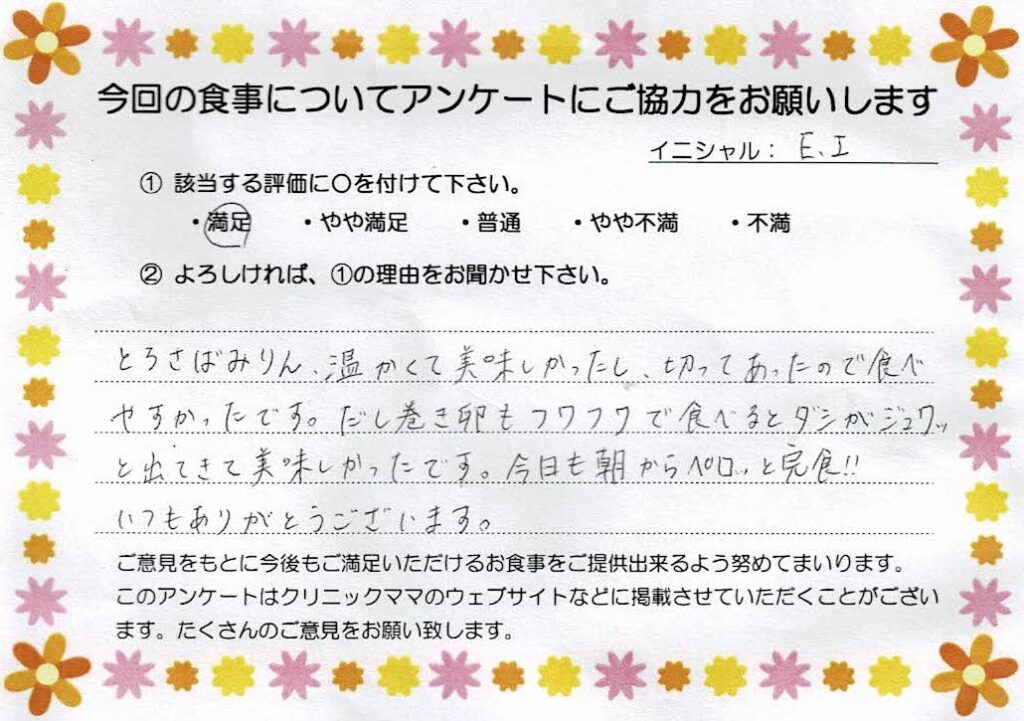 今回の食事についてアンケートにご協力をお願いします
イニシャル： E、I
① 該当する評価に〇を付けて下さい。
・満足 ・やや満足 ・普通 ・やや不満 ・不満
② よろしければ、①の理由をお聞かせ下さい。
とろさばみりん、温かくて美味しかったし、切ってあったので食べ
やすかったです。だし巻き卵もフワフワで食べるとダシがジュワッ
と出てきて美味しかったです。今日も朝からペロッと完食!!
いつもありがとうございます。
ご意見をもとに今後もご満足いただけるお食事をご提供出来るよう努めてまいります。
このアンケートはクリニックママのウェブサイトなどに掲載させていただくことがござい
ます。たくさんのご意見をお願い致します。